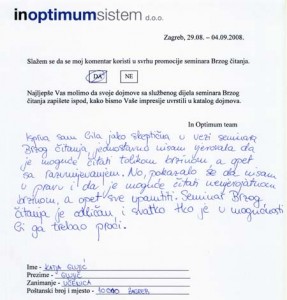 inoptimumsistem d.o.o.
Zagreb, 29.08. – 04.09.2008.
Slažem se da se moj komentar koristi u svrhu promocije seminara Brzog čitanja.
DA NE
Najljepše Vas molimo da svoje dojmove sa službenog dijela seminara Brzog
čitanja zapišete ispod, kako bismo Vaše impresije uvrstili u katalog dojmova.
In Optimum team
sam bila jako skeptična u vezi seminara
Brzog čitanja jednostavno nisam vjerovala da
je moguće čitati tolikom brzinom, a opet
sa razumijevanjem. No, pokazalo se da nisam
u pravu i da je moguće čitati nevjerojatnom
brzinom, a opet sve upamtiti. Seminar Brzog
čitanja je odličan i svatko tko je u mogućnosti
bi ga trebao proći.
Ime:
Prezime:
Zanimanje: UČENICA
Poštanski broj i mjesto: 10000 ZAGREB